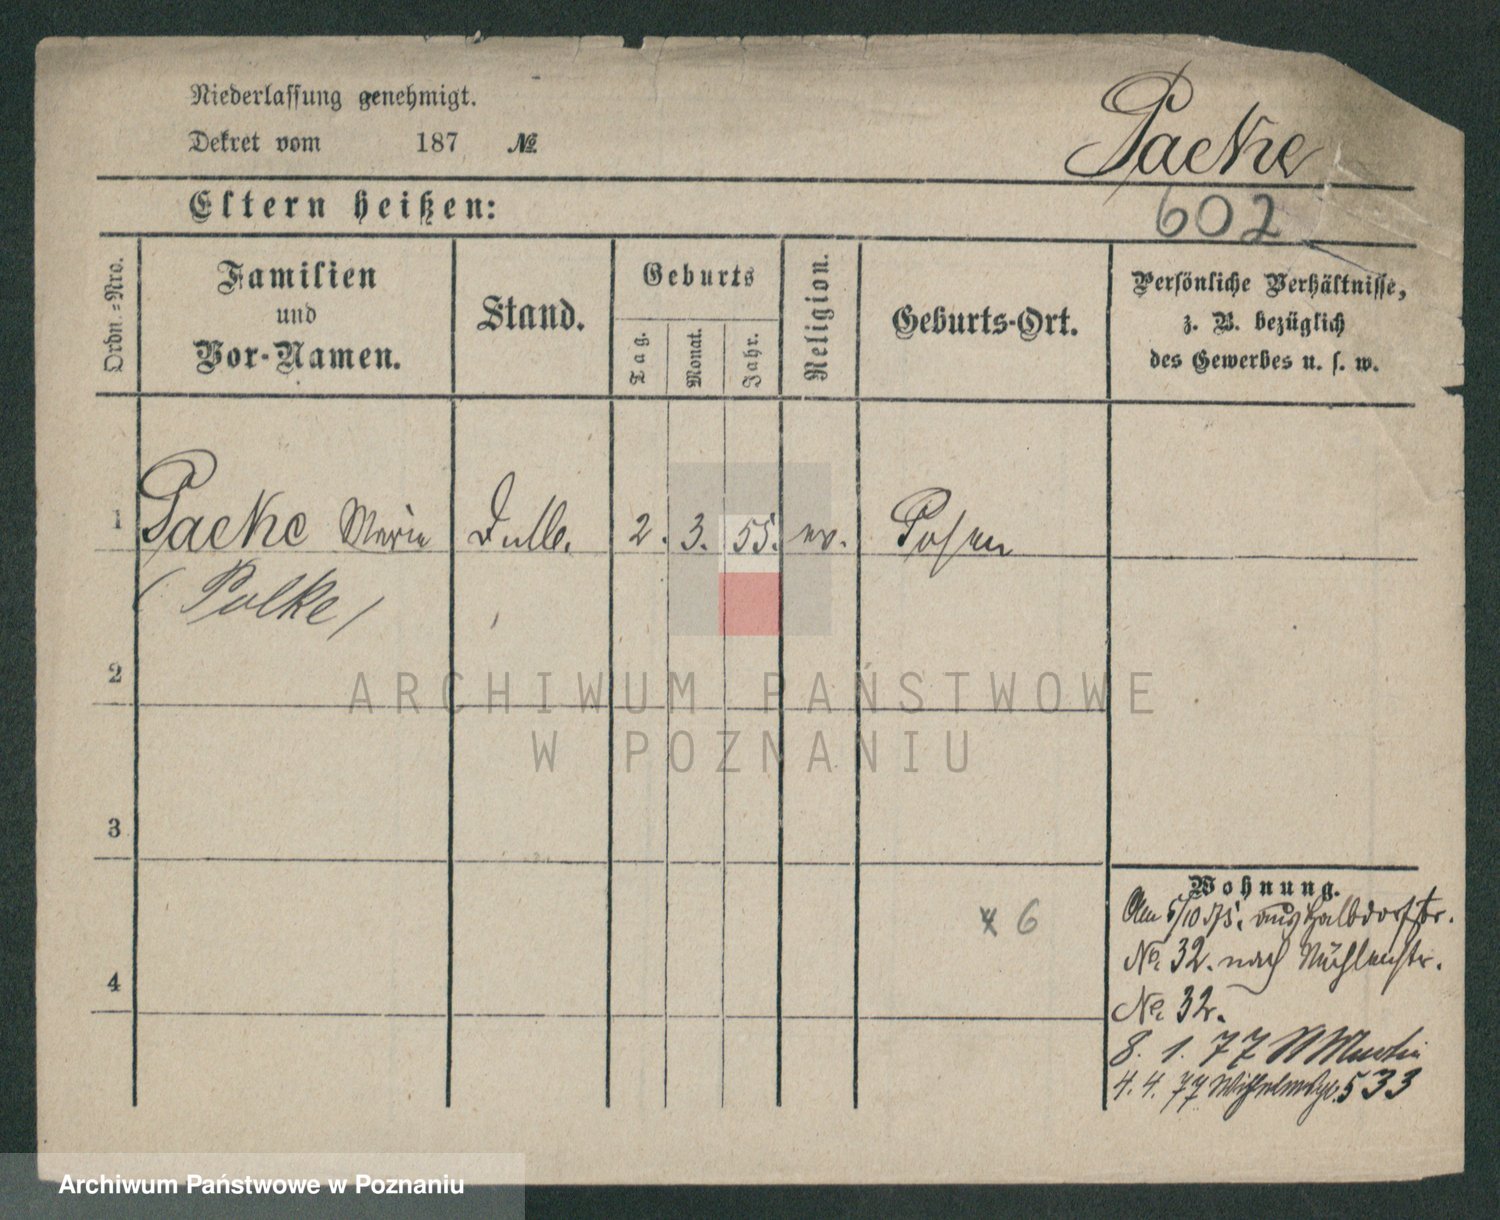 Niederlassung genehmigt.
Dekret vom 187 №
Packe
602
Eltern heißen:
Ordn.-Nro.
Familien
und
Vor-Namen.
Stand.
Geburts
Tag.
Monat.
Jahr.
Religion.
Geburts-Ort.
Persönliche Verhältnisse,
z. B. bezüglich
des Gewerbes u. s. w.
1 Packe Marie 2. 3. 55. ev. Posen
(Polke)
2
3
4
6
Wohnung.
Am 5/10 75. aus Halbdorfstr.
No. 32. nach Mühlenstr.
No 32.
8. 1. 77 Martin
4. 4. 77 533
ARCHIWUM PAŃSTWOWE
W POZNANIU
Archiwum Państwowe w Poznaniu